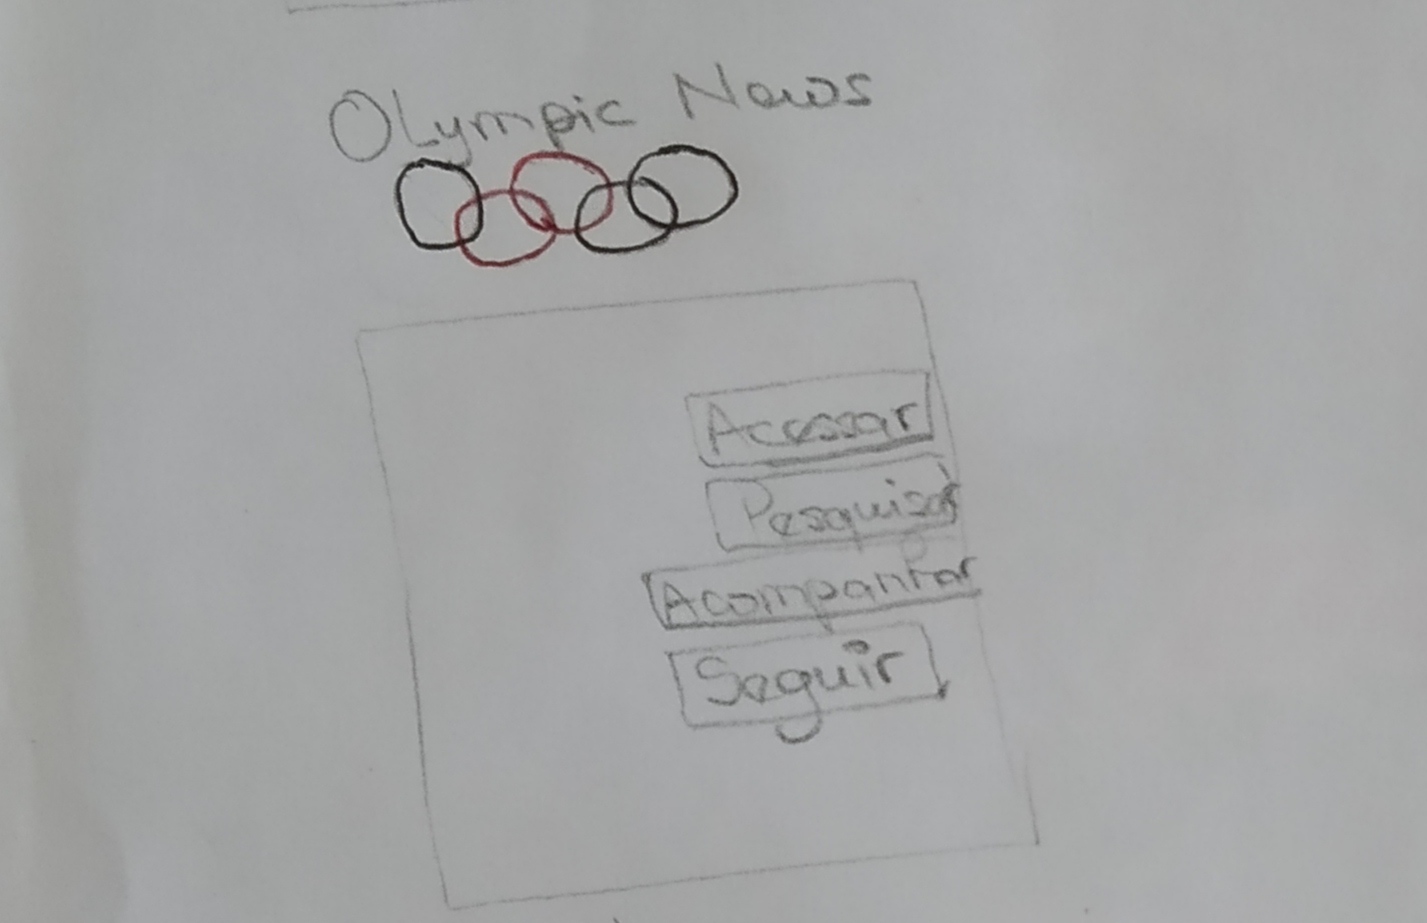 Olympic News
Acessar
Pesquisar
Acompanhar
Seguir